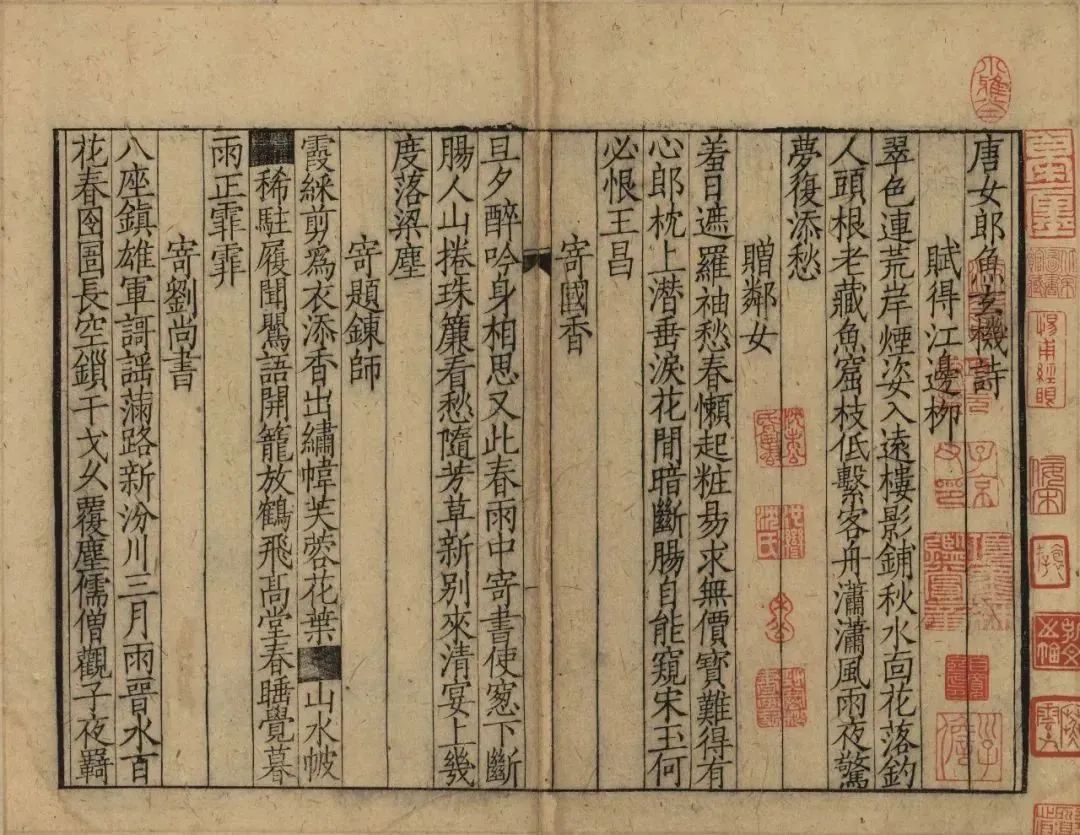 唐女郎魚玄機詩
賦得江邊栁
翠色連荒岸煙姿入遠樓影鋪秋水面花落釣
人頭根老藏魚窟枝低繫客舟瀟瀟風雨夜驚
夢復添愁
贈鄰女
羞日遮羅袖愁春懶起粧昜求無價寶難得有
心郎枕上潛垂淚花間暗斷腸自能窺宋玉何
必恨王昌
寄國香
旦夕醉吟身相思又此春雨中寄書使窓下斷
腸人山捲珠簾看愁隨芳草新别來清宴上幾
度落梁塵
寄題鍊師
霞綵剪爲衣添香出繡幃芙蓉花葉山水帔
稀駐履聞鶯語開籠放鶴飛髙堂春睡覺暮
雨正霏霏
寄劉尚書
八座鎮雄軍謌謡滿路新汾川三月雨晉水百
花春囹圄長空鎖干戈乆覆塵儒僧觀子夜羇